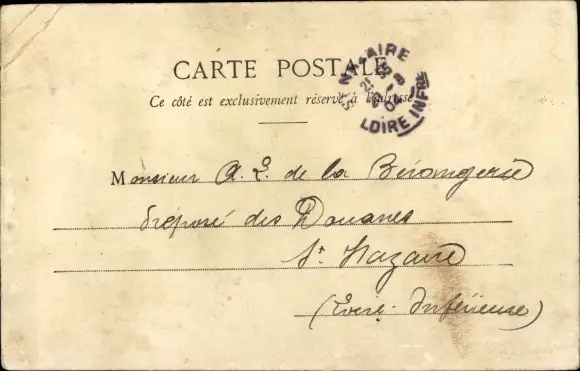 CARTE POSTALE
Ce côté est exclusivement réservé à l'adresse
ST NAZAIRE
LOIRE INFRE
Monsieur A. L. de la Bérangerie
Préposé des Douanes
St. Nazaire
(Loire-Inférieure)